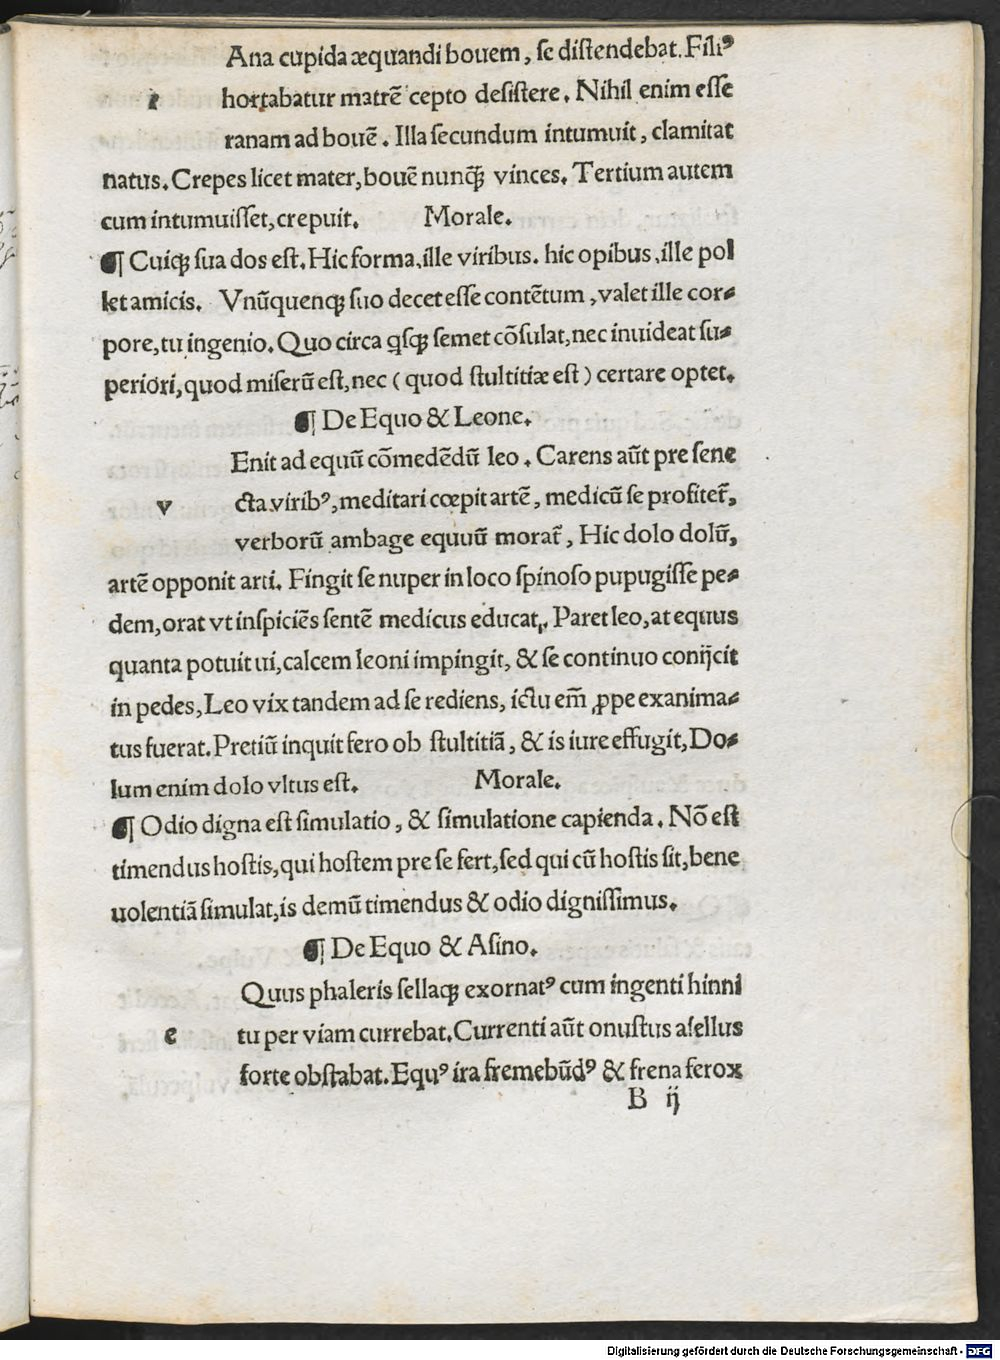 Ana cupida æquandi bouem, se distendebat. Filiꝰ
r hortabatur matrē cepto desistere. Nihil enim esse
ranam ad bouē. Illa secundum intumuit, clamitat
natus. Crepes licet mater, bouē nunq̄ȝ vinces. Tertium autem
cum intumuisset, crepuit. Morale.
¶ Cuiqȝ sua dos est. Hic forma, ille viribus. hic opibus, ille pol
let amicis. Vnūquenqȝ suo decet esse contētum, valet ille cor⸗
pore, tu ingenio. Quo circa qsqȝ semet cōsulat, nec inuideat su⸗
periori, quod miserū est, nec (quod stultitiæ est) certare optet.
¶ De Equo & Leone.
Enit ad equū cōmedēdū leo. Carens aūt pre sene
v cta viribꝰ, meditari cœpit artē, medicū se profitet̄,
verborū ambage equuū morat̄, Hic dolo dolū,
artē opponit arti. Fingit se nuper in loco spinoso pupugisse pe⸗
dem, orat vt inspiciēs sentē medicus educat, Paret leo, at equus
quanta potuit ui, calcem leoni impingit, & se continuo conijcit
in pedes, Leo vix tandem ad se rediens, ictu em̄ ꝓpe exanima⸗
tus fuerat. Pretiū inquit fero ob stultitiā, & is iure effugit, Do⸗
lum enim dolo vltus est. Morale.
¶ Odio digna est simulatio, & simulatione capienda. Nō est
timendus hostis, qui hostem pre se fert, sed qui cū hostis sit, bene
uolentiā simulat, is demū timendus & odio dignissimus.
¶ De Equo & Asino.
Quus phaleris sellaqȝ exornatꝰ cum ingenti hinni
e tu per viam currebat. Currenti aūt onustus asellus
forte obstabat. Equꝰ ira fremebūdꝰ & frena ferox
B ij
Digitalisierung gefördert durch die Deutsche Forschungsgemeinschaft - DFG